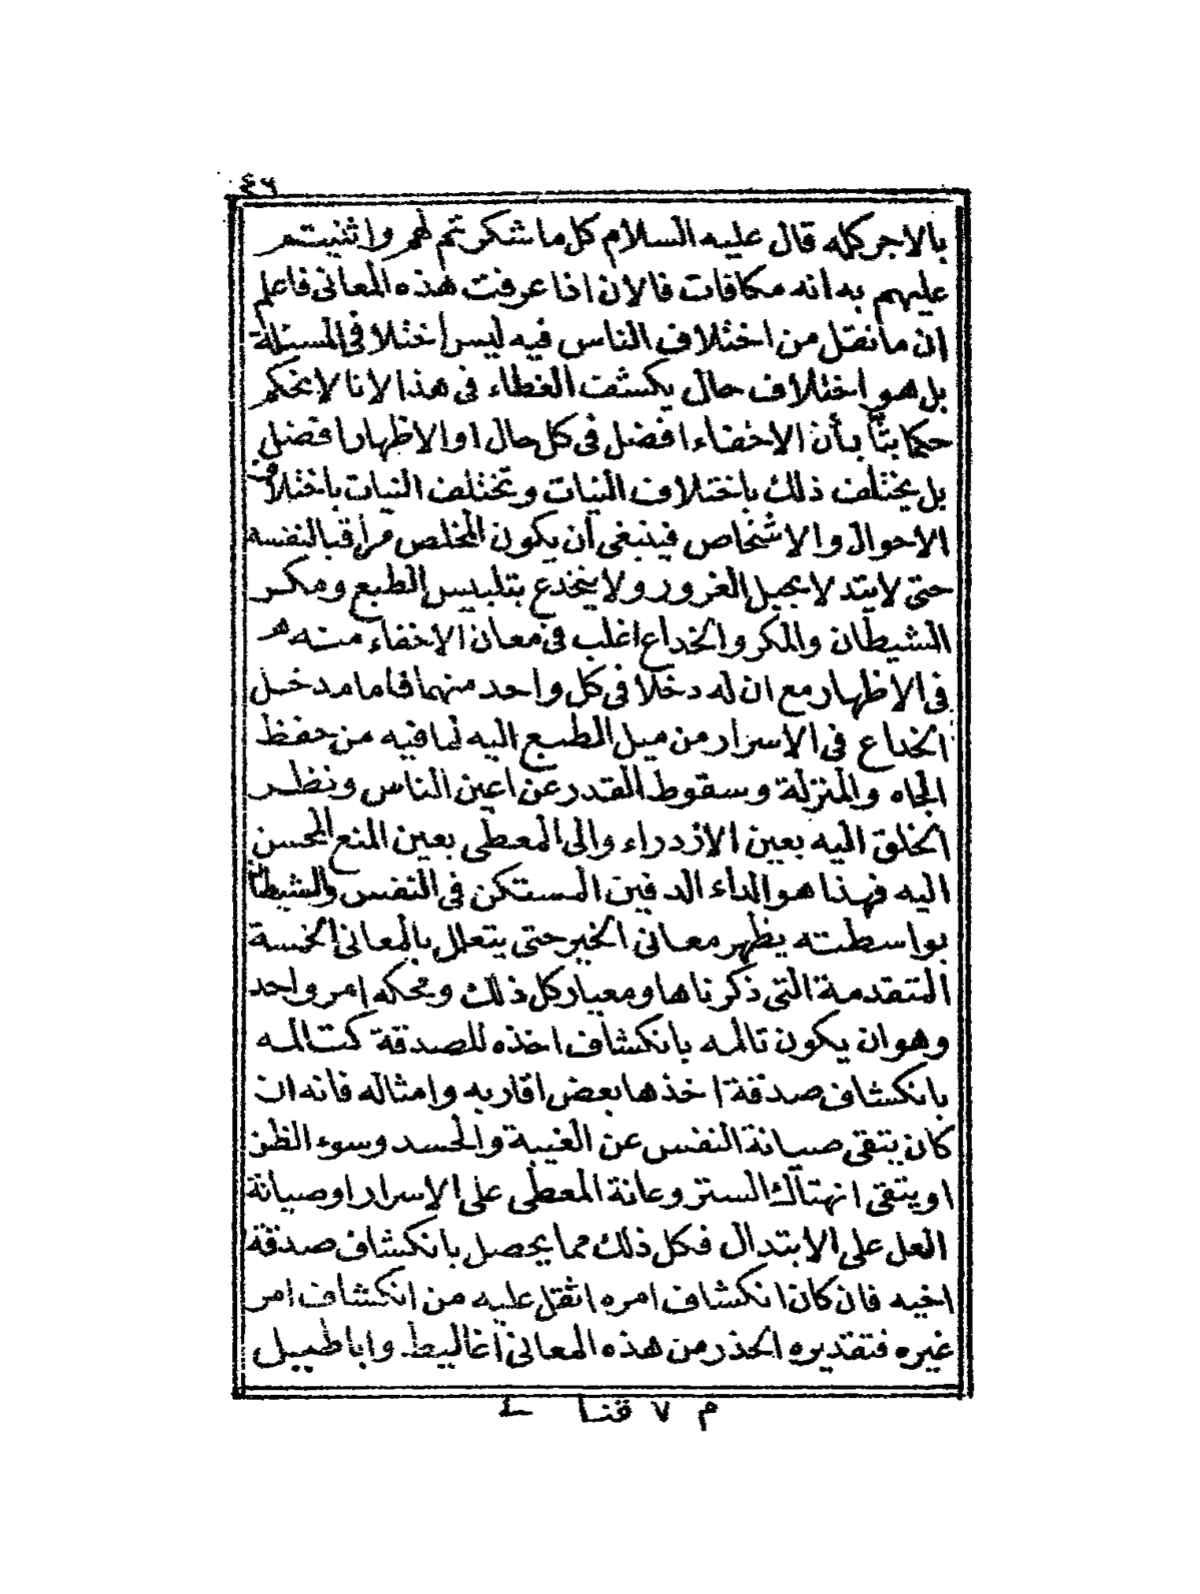 ٤٩
بالاجركله قال عليه السلام كل ما شكرتم لهم واثنيتم
عليهم به انه مكافات فالان اذا عرفت هذه المعانى فاعلم
ان ما نقل من اختلاف الناس فيه ليس اختلا فى المسئلة
بل هو اختلاف حال يكشف الغطاء فى هذا لانا لا نحكم
حكما بتًّا بأن الاخفاء افضل فى كل حال او الاظهار افضل
بل يختلف ذلك باختلاف النيات وتختلف النيات باختلاف
الاحوال والاشخاص فينبغى أن يكون المخلص مراقبا لنفسه
حتى لا يتد لا بحبل الغرور ولا ينخدع بتلبيس الطبع ومكر
الشيطان والمكر والخداع اغلب فى معان الاخفاء منه
فى الاظهار مع ان له دخلا فى كل واحد منهما فاما مدخل
الخداع فى الاسرار من ميل الطبع اليه لما فيه من حفظ
الجاه والمنزلة وسقوط القدر عن اعين الناس ونظر
الخلق اليه بعين الازدراء والى المعطى بعين المنع المحسن
اليه فهذا هو الداء الدفين المستكن فى النفس والشيطان
بواسطته يظهر معانى الخير حتى يتعلل بالمعانى الخمسة
المتقدمة التى ذكرناها ومعيار كل ذلك ومحكه امر واحد
وهو ان يكون تالمه بانكشاف اخذه للصدقة كتالمه
بانكشاف صدقة اخذها بعض اقاربه وامثاله فانه ان
كان يتقى صيانة النفس عن الغيبة والحسد وسوء الظن
او يتقى انهتاك الستر وعانة المعطى على الاسرار او صيانة
العل على الابتدال فكل ذلك مما يحصل بانكشاف صدقة
اخيه فان كان انكشاف امره اثقل عليه من انكشاف امر
غيره فتقديره الحذر من هذه المعانى أغاليط واباطيل
م ٧ قنا لى